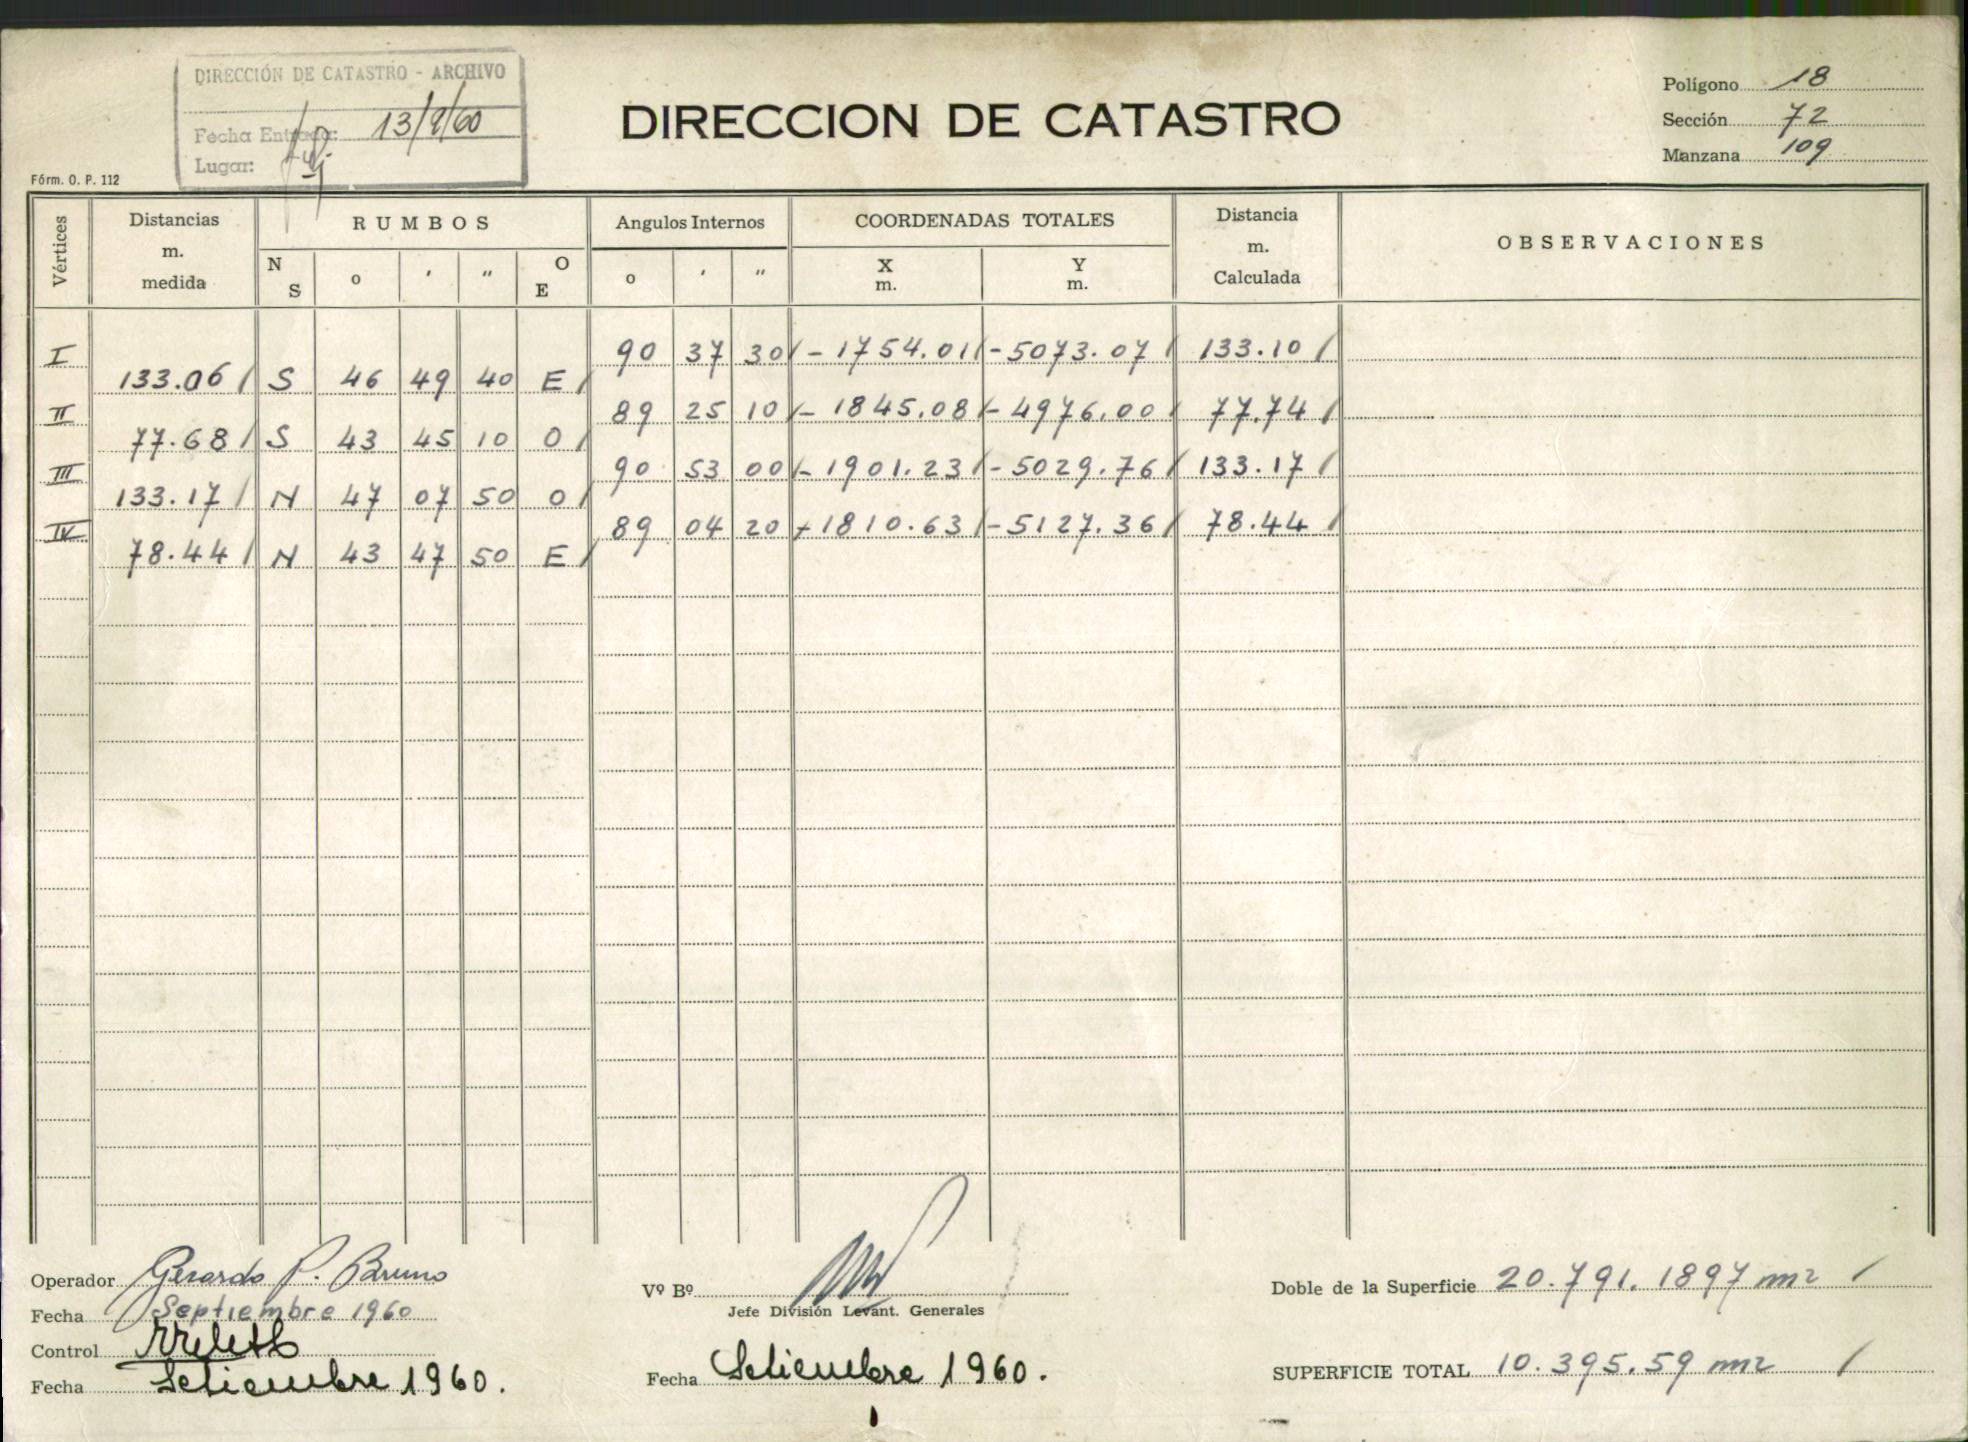 DIRECCIÓN DE CATASTRO - ARCHIVO
Fecha Entrada: 13/9/60
Lugar:
Fórm. O. P. 112
DIRECCION DE CATASTRO
Polígono 18
Sección 72
Manzana 109
Vértices Distancias m. medida RUMBOS Angulos Internos COORDENADAS TOTALES Distancia m. Calculada OBSERVACIONES
N S o ′ ″ O E o ′ ″ X m. Y m.
I 90 37 30 / - 1754.01 / - 5073.07 / 133.10 /
133.06 / S 46 49 40 E /
II 89 25 10 / - 1845.08 / - 4976.00 / 77.74 /
77.68 / S 43 45 10 O /
III 90 53 00 / - 1901.23 / - 5029.76 / 133.17 /
133.17 / N 47 07 50 O /
IV 89 04 20 + 1810.63 / - 5127.36 / 78.44 /
78.44 / N 43 47 50 E /
Operador Gerardo P. Bruno
Fecha Septiembre 1960
Control
Fecha Setiembre 1960.
Vº Bº
Jefe División Levant. Generales
Fecha Setiembre 1960.
Doble de la Superficie 20.791.1897 m2 /
SUPERFICIE TOTAL 10.395.59 m2 /